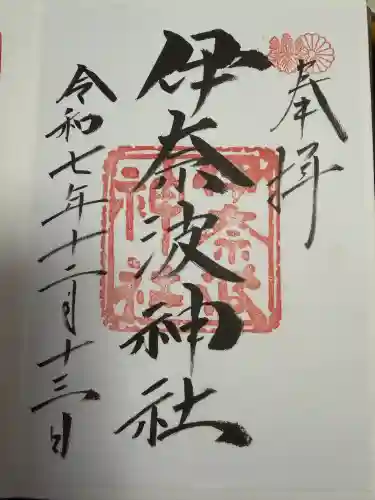 奉拝
伊奈波神社
令和七年十二月十三日
伊奈波
神社